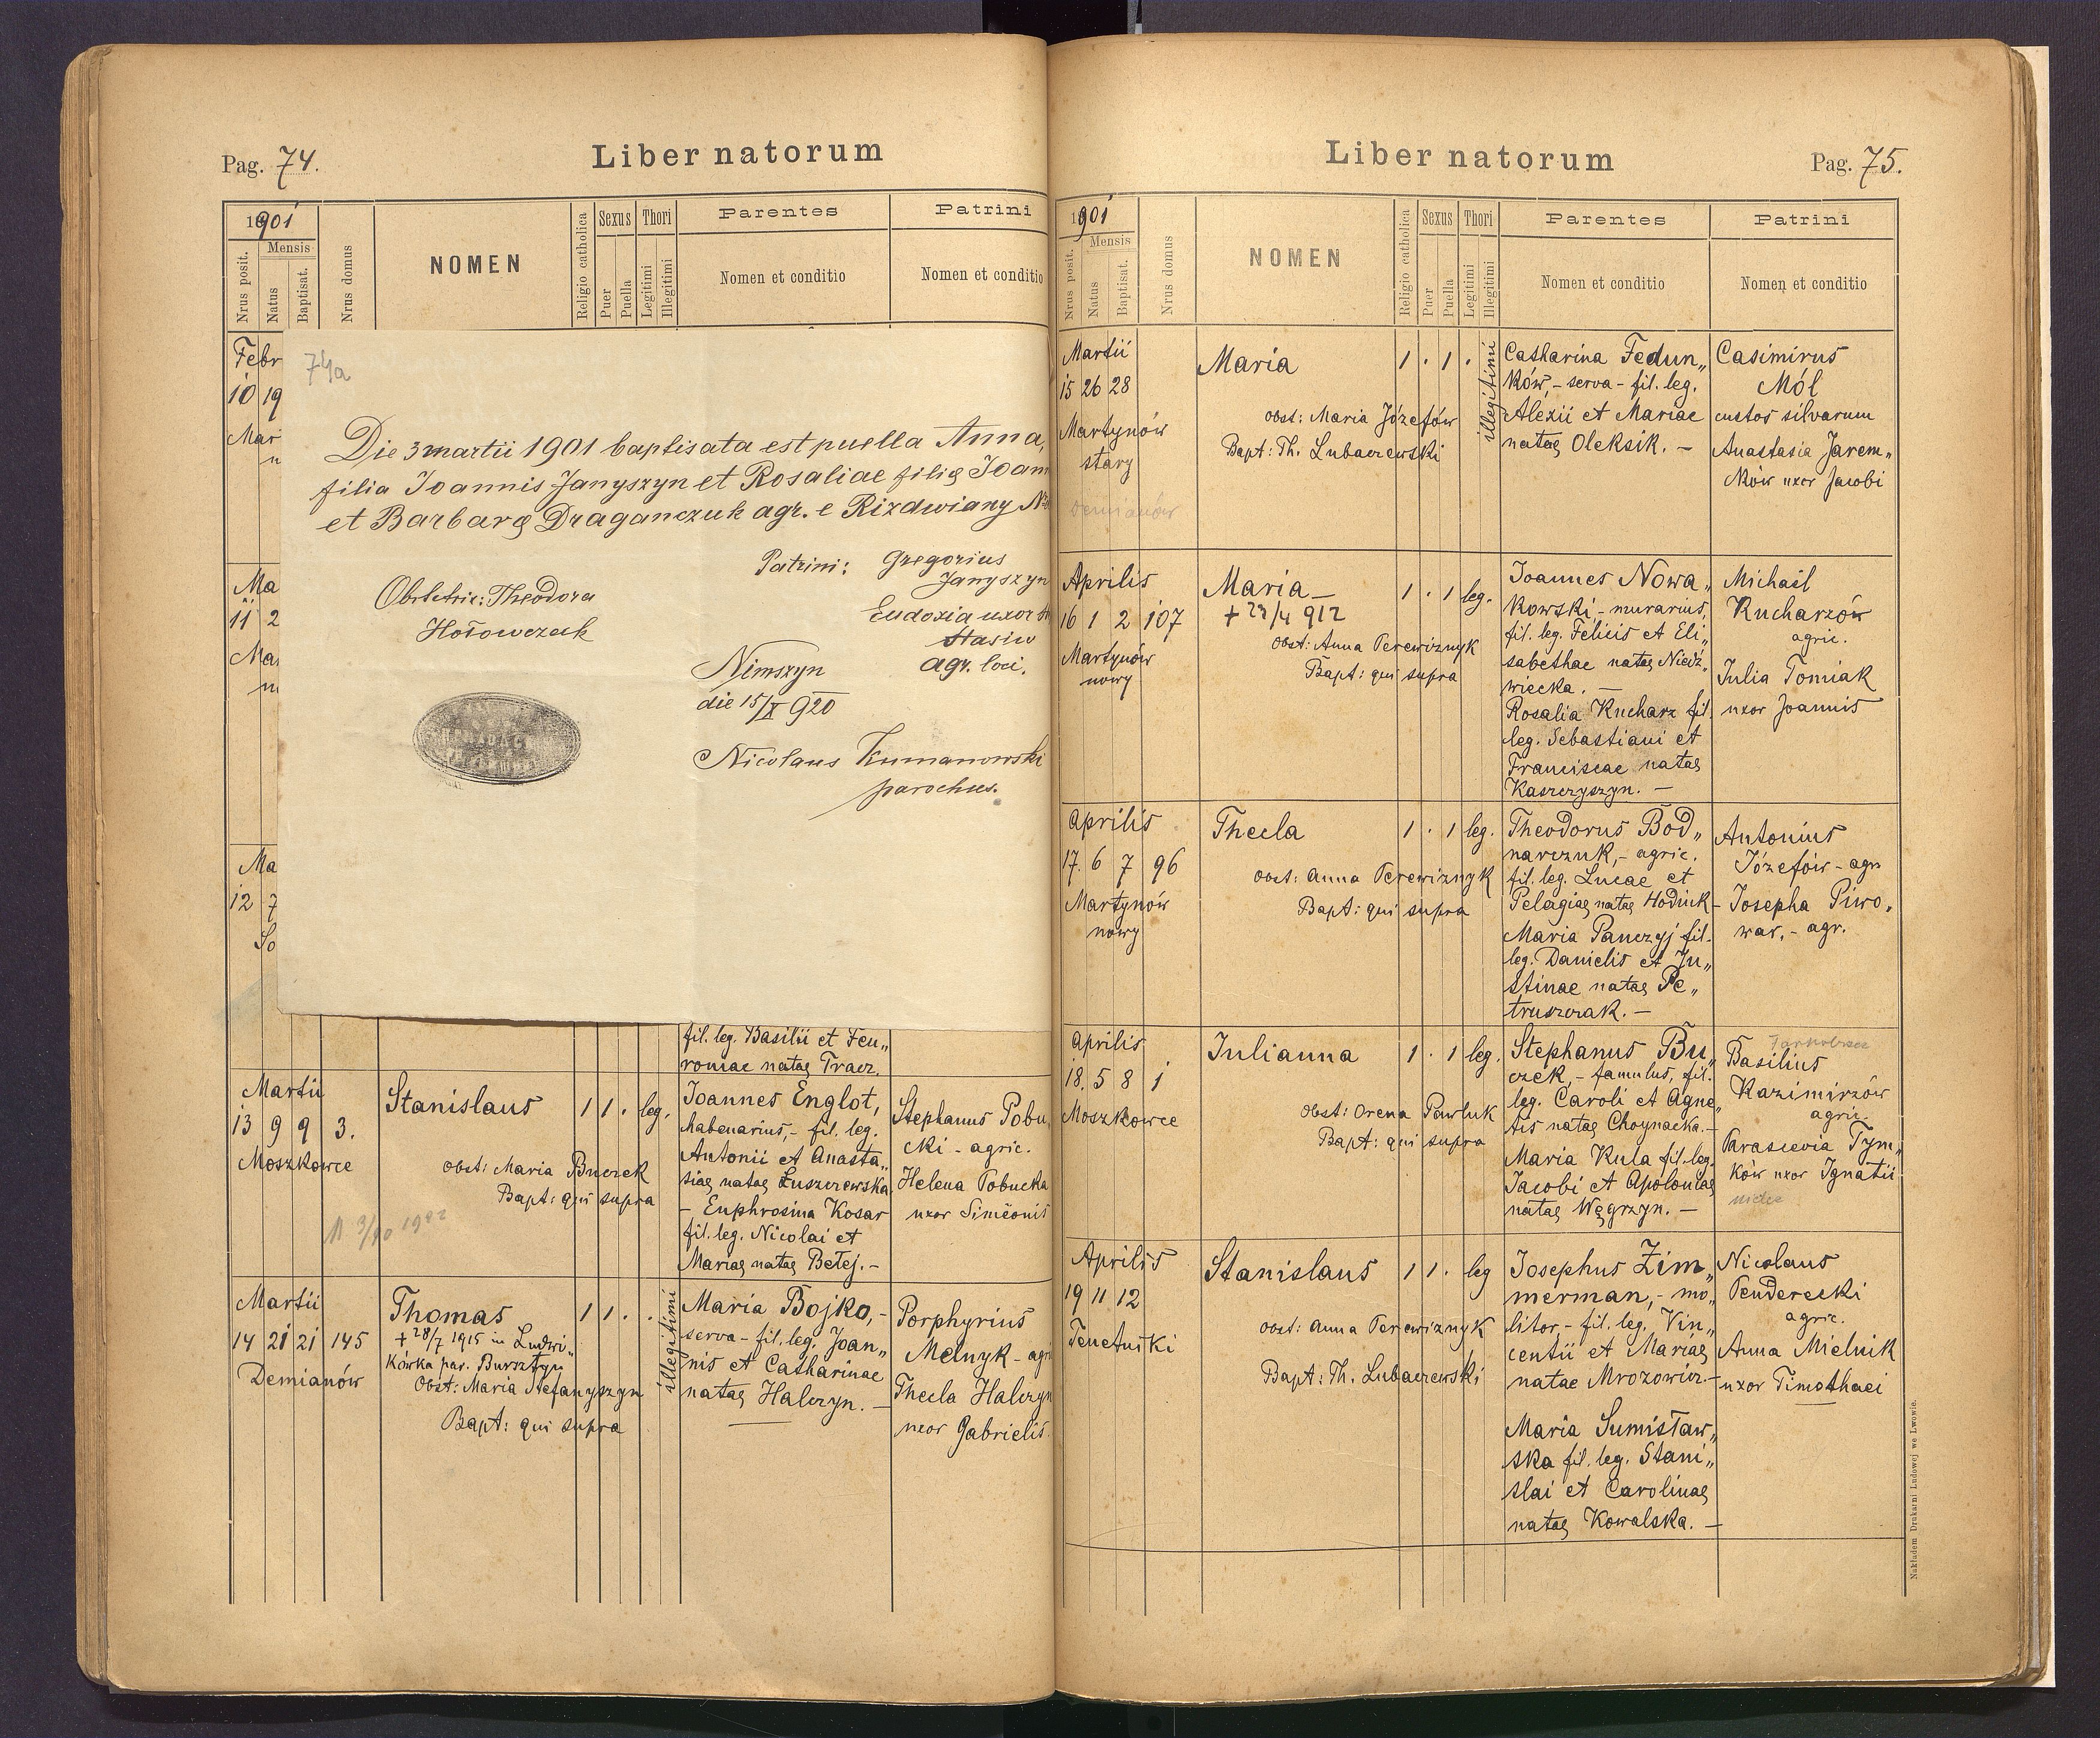 Pag. 74.
Liber natorum
1901
Mensis
Nrus posit.
Natus
Baptisat.
Nrus domus
NOMEN
Religio catholica
Sexus
Puer
Puella
Thori
Legitimi
Illegitimi
Parentes
Nomen et conditio
Patrini
Nomen et conditio
Febr
10 19
Mar
n
Ma
11 2
Mar
12 7
So
Ma
74a
Die 3 martii 1901 baptisata est puella Anna,
filia Joannis Janyszyn et Rosaliae filię Joan
et Barbarę Draganczuk agr. e Rizdwiany
Patrini: Gregorius
Janyszyn
Eudoxia uxor
Stasiw
agr. loci.
Obstetrix: Theodora
Hołowczak
Nimszyn
die 15/X 920
Nicolaus Kumanowski
parochus.
fil. leg. Basilii et Feu„
roniae natae Tracz.
Martii
13 9 9 3.
Moszkowce
Stanislaus
1 1 . leg.
obst: Maria Buczek
Bapt: qui supra
Joannes Englot,
habenarius,- fil. leg.
Antonii et Anasta„
siae natae Łuszczewska
- Euphrosina Kosar
fil. leg. Nicolai et
Mariae natae Betej. -
Stephanus Pobu„
cki - agric.
Helena Pobucka
uxor Simeonis
Martii
14 21 21 145
Demianów
Thomas
+ 28/7 1915 in Ludwi„
kówka par. Bursztyn
Obst: Maria Stefanyszyn
Bapt: qui supra
1 1 . .
illegitimi
Maria Bojko,-
serva - fil. leg. Joan„
nis et Catharinae
natae Halczyn. -
Porphyrius
Melnyk - agri
Thecla Halczyn
uxor Gabrielis.
Liber natorum
Pag. 75.
1901
Mensis
Nrus posit.
Natus
Baptisat.
Nrus domus
NOMEN
Religio catholica
Sexus
Puer
Puella
Thori
Legitimi
Illegitimi
Parentes
Nomen et conditio
Patrini
Nomen et conditio
Martii
15 26 28
Martynów
stary
Demianów
Maria
1 . 1 .
illegitimi
obst: Maria Józefów
Bapt: Th. Lubaczewski
Catharina Fedun„
ków - serva - fil. leg.
Alexii et Mariae
natae Oleksik. -
Casimirus
Mól
custos silvarum
Anastasia Jarem„
ków uxor Jacobi
Aprilis
16 1 2 107
Martynów
nowy
Maria -
+ 23/4 912
1 . 1 leg.
obst: Anna Perewiznyk
Bapt: qui supra
Joannes Nowa„
kowski,- murarius,
fil. leg. Felicis et Eli„
sabethae natae Niedź„
wiecka. -
Rosalia Kucharz fil.
leg. Sebastiani et
Franciscae natae
Kaszczyszyn. -
Michaël
Kucharzów
agric.
Julia Tomiak
uxor Joannis
Aprilis
17. 6 7 96
Martynów
nowy
Thecla
1 . 1 leg.
obst: Anna Perewiznyk
Bapt: qui supra
Theodorus Bod„
narczuk,- agric.
fil. leg. Lucae et
Pelagiae natae Hodiuk -
Maria Panczyj fil.
leg. Danielis et Ju„
stinae natae Pe„
truszczak. -
Antonius
Józefów - agr
Josepha Piwo„
war, - agr.
Aprilis
18. 5 8 1
Moszkowce
Julianna
1 . 1 leg.
obst: Orena Pawluk
Bapt: qui supra
Stephanus Bu„
czek,- famulus, fil.
leg. Caroli et Agne„
tis natae Choynacka. -
Maria Kula fil. leg.
Jacobi et Apoloniae
natae Węgrzyn. -
Basilius
Kazimirzów
agric.
Parascevia Tym„
ków uxor Ignatii
Aprilis
19 11 12
Tenetniki
Stanislaus
1 1 . leg
obst: Anna Perewiznyk
Bapt: Th. Lubaczewski
Josephus Zim„
merman,- mo„
litor - fil. leg. Vin„
centii et Mariae
natae Mrozowicz. -
Maria Sumisław„
ska fil. leg. Stani„
slai et Carolinae
natae Kowalska. -
Nicolaus
Penderecki
agric.
Anna Mielnik
uxor Timothaei
Nakładem Drukarni Ludowej we Lwowie.